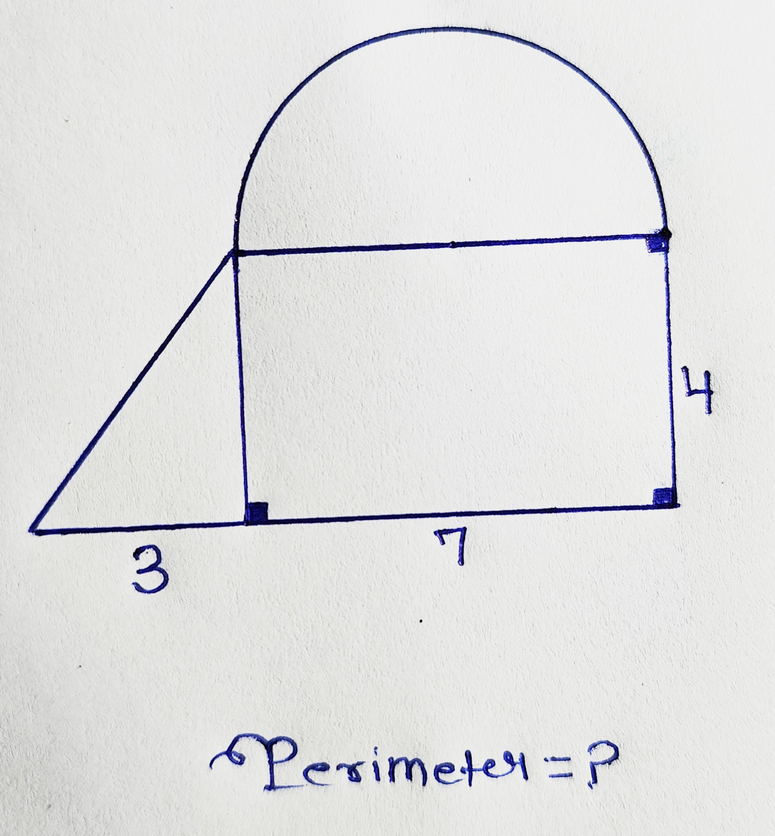 4
3 7
Perimeter = ?